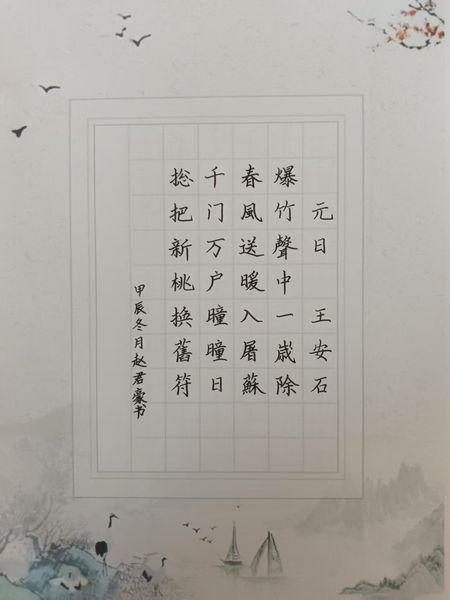 元日 王安石
爆竹聲中一嵗除
春風送暖入屠蘇
千门万户曈曈日
捴把新桃換舊符
甲辰冬月赵君豪书